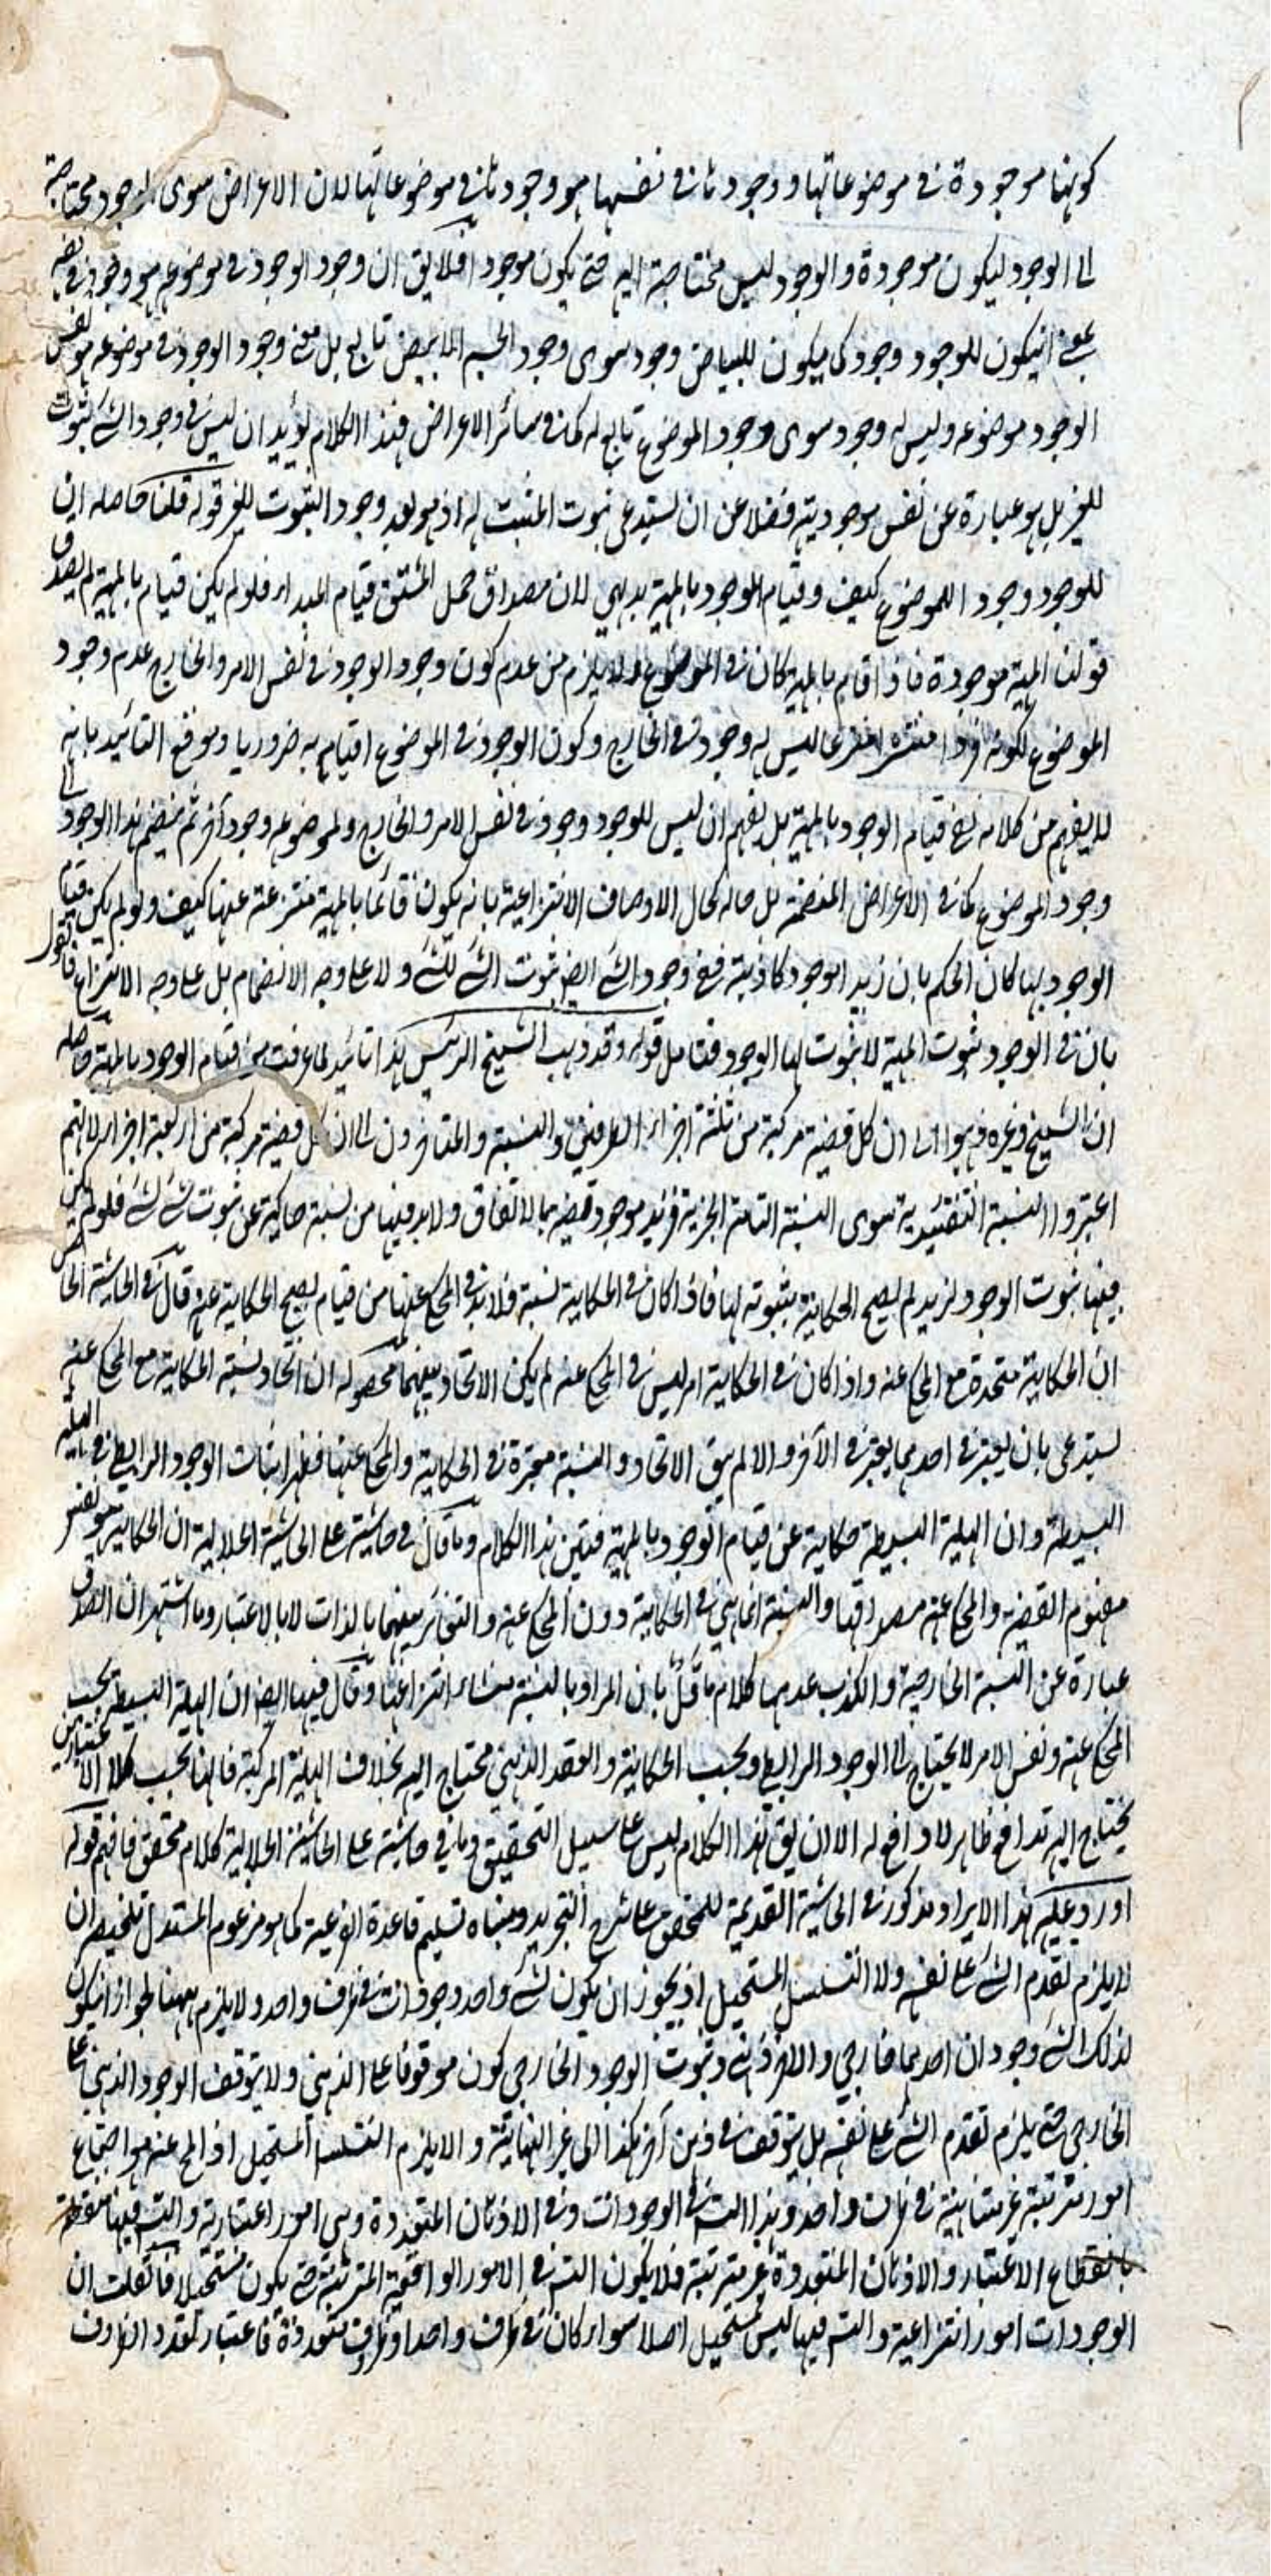 كونها موجودة في موضوعاتها ووجودها في نفسها هو وجودها في موضوعاتها لان الاعراض سوى الوجود محتاجة
الى الوجود ليكون موجودة والوجود ليس محتاجة اليه حتى يكون موجودا فلا يق ان وجود الوجود في موضوعه هو وجوده في نفسه
بمعنى ان يكون للوجود وجود كما يكون للبياض وجود سوى وجود الجسم الابيض تابع بل معنى وجود الوجود في موضوعه هو نفس
الوجود موضوعه وليس له وجود سوى وجود الموضوع تابع له كما في سائر الاعراض فهذا الكلام يؤيد ان ليس في وجود الشئ ثبوت
للغير بل هو عبارة عن نفس موجوديته فضلا عن ان يستدعى ثبوت المثبت له اذ هو بعد وجود الثبوت للغير قوله قلنا حاصله ان
للوجود وجودا للموضوع كيف وقيام الوجود بالمهية بديهي لان مصداق حمل المشتق قيام المبدا فلو لم يكن قيام بالمهية لم يصدق
قولنا المهية موجودة فاذا قام بالمهية كان في الموضوع ولا يلزم من عدم كون وجود الوجود في نفس الامر والخارج عدم وجود
الموضوع لكونه ليس له وجود في الخارج وكون الوجود في الموضوع اقيام به ضروريا ودفع التائيد بانه
لا يفهم من كلامه نفي قيام الوجود بالمهية بل يفهم ان ليس للوجود وجود في نفس الامر والخارج ولموضوعه وجود آخر ثم ينضم هذا الوجود الى
وجود الموضوع كما في الاعراض المنضمة بل حاله كحال الاوصاف الانتزاعية بانه يكون قائما بالمهية منتزعة عنها كيف ولو لم يكن قيام
الوجود بها كان الحكم بان زيد موجود كاذبة ففي وجود الشئ ايض ثبوت الشئ للشئ ولا على وجه الانضمام بل على وجه الانتزاع فالقول
بان في الوجود ثبوت المهية لا ثبوت لها الوجود فتامل قوله وقد ذهب الشيخ الرئيس هذا تائيد لما عرفت من قيام الوجود بالمهية حاصله
ان الشيخ وغيره ذهبوا الى ان كل قضية مركبة من ثلثة اجزاء الطرفين والنسبة والمتاخرون الى ان كل قضية مركبة من اربعة اجزاء لانهم
اعتبروا النسبة التقييدية سوى النسبة التامة الخبرية فزيد موجود قضية بالاتفاق ولا بد فيها من نسبة حاكية عن ثبوت شئ لشئ فلو لم يكن
فيها ثبوت الوجود لزيد لم يصح الحكاية بثبوته لها فاذا كان في الحكاية نسبة فلا بد في المحكي عنها من قيام يصح الحكاية عنه قال في الحاشية
ان الحكاية متحدة مع المحكي عنه واذا كان في الحكاية امر ليس في المحكي عنه لم يكن الاتحاد بينهما محصوله ان اتحاد نسبة الحكاية مع المحكي عنه
يستدعى بان يعتبر في احدهما يعتبر في الآخر والا لم يبق الاتحاد والنسبة معتبرة في الحكاية والمحكي عنها فظهر اثبات الوجود الرابطي في الهلية
البسيطة وان الهلية البسيطة حكاية عن قيام الوجود بالمهية فتبين هذا الكلام وما قال في حاشية على الحاشية الجلالية ان الحكاية هو نفس
مفهوم القضية والمحكي عنه مصداقها والنسبة انما هي في الحكاية دون المحكي عنه والتغاير بينهما بالذات لا بالاعتبار وما اشتهر ان الصدق
عبارة عن النسبة الخارجية والكذب عدمها كلام ماول بان المراد بالنسبة منشاء انتزاعها وقال فيها ايض ان الهلية البسيطة بحسب
المحكي عنه ونفس الامر لا يحتاج الى الوجود الرابطي وبحسب الحكاية والعقد الذهني محتاج اليه بخلاف الهلية المركبة فانها بحسب كلا الاعتبارين
يحتاج اليه تدافع ظاهر لا دافع له الا ان يق هذا الكلام ليس على سبيل التحقيق وما في حاشية على الحاشية الجلالية كلام محقق فافهم قوله
اورد عليه هذا الايراد مذكور في الحاشية القديمة للمحقق على شرح التجريد ومبناه تسليم قاعدة الفرعية كما هو مزعوم المستدل تلخيصه ان
لا يلزم تقدم الشئ على نفسه ولا التسلسل المستحيل اذ يجوز ان يكون لشئ واحد وجودات في ظرف واحد ولا يلزم ههنا لجواز ان يكون
لذلك الشئ وجودان احدهما خارجي والاخر ذهني وثبوت الوجود الخارجي كون موقوفا على الذهني ولا يتوقف الوجود الذهني على
الخارجي حتى يلزم تقدم الشئ على نفسه بل يتوقف في ذهن آخر هكذا الى غير النهاية والا يلزم التسلسل المستحيل اذ المح عنه هو اجتماع
امور مترتبة غير متناهية في ظرف واحد وهذا التس في الوجودات وفي الاذهان المتعددة وهي امور اعتبارية والتس فيها منقطع
بانقطاع الاعتبار والاذهان المتعددة غير مترتبة فلا يكون التس في الامور الواقعية المترتبة حتى يكون مستحيلا فان قلت ان
الوجودات امور انتزاعية والتس فيها ليس مستحيل اصلا سواء كان في ظرف واحد او ظروف متعددة فاعتبار تعدد الظروف